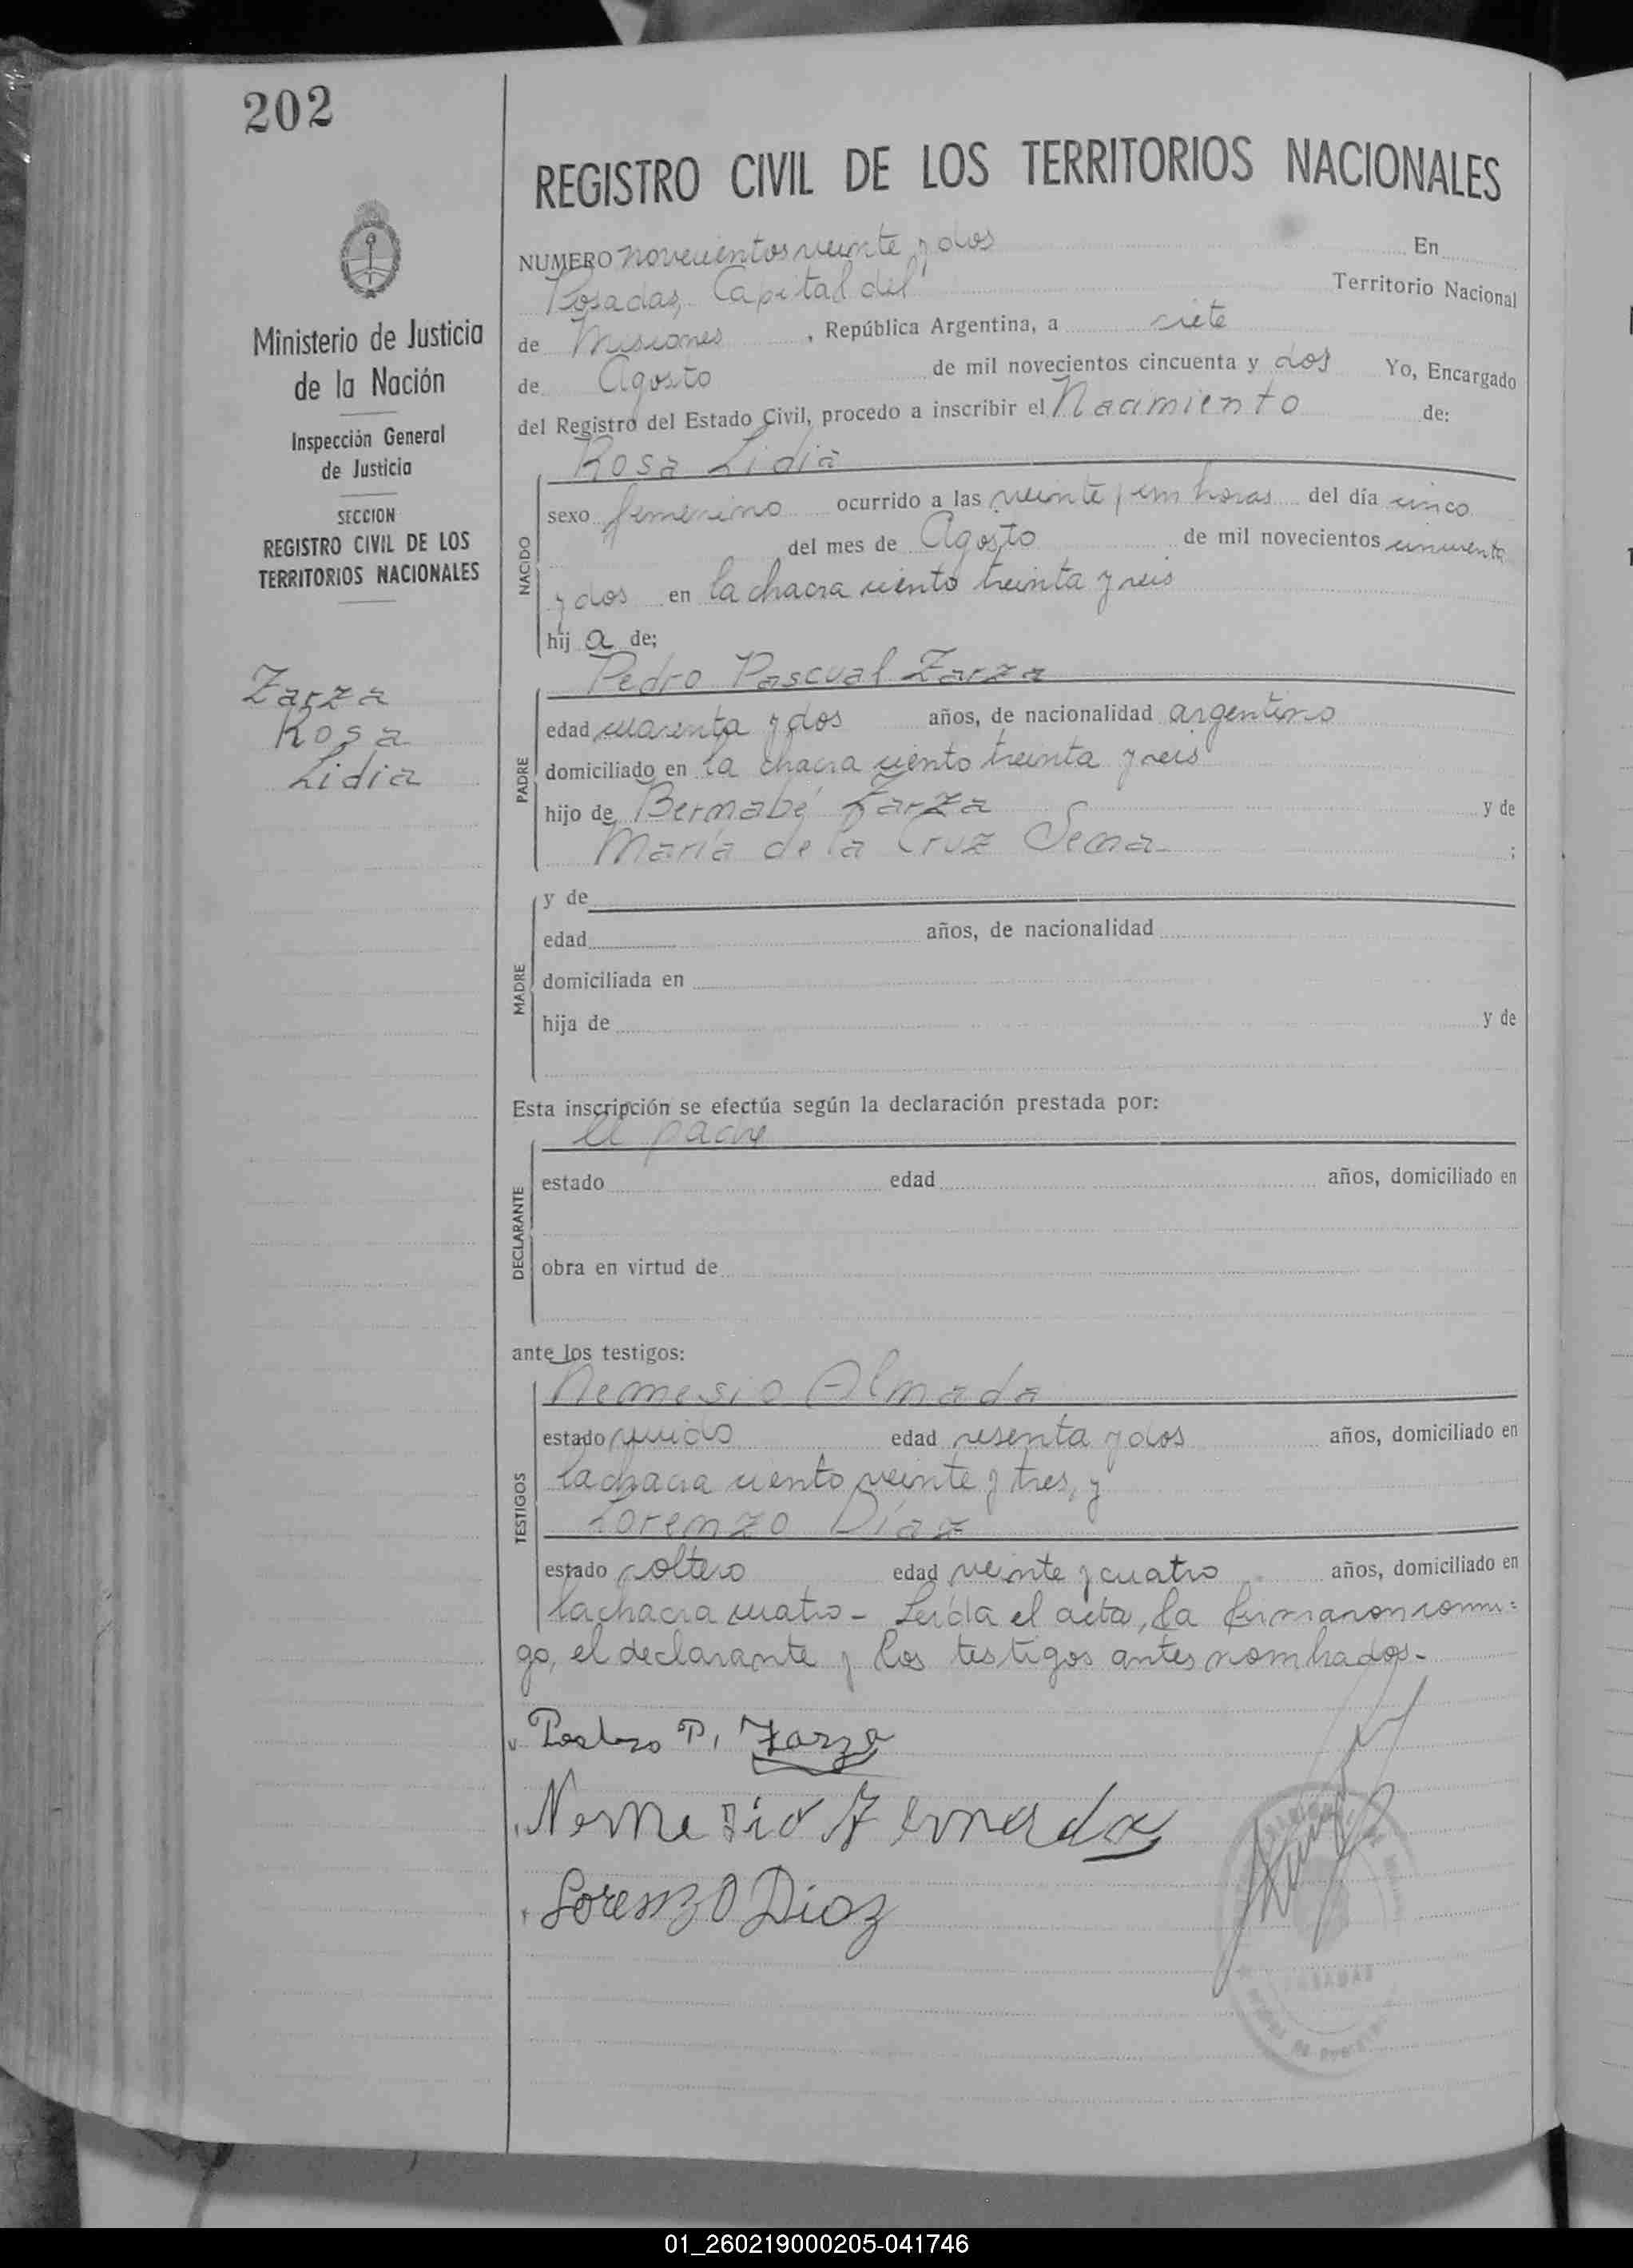 202
REGISTRO CIVIL DE LOS TERRITORIOS NACIONALES
Ministerio de Justicia
de la Nación
Inspección General
de Justicia
SECCION
REGISTRO CIVIL DE LOS
TERRITORIOS NACIONALES
Zarza
Rosa
Lidia
NUMERO novecientos veinte y dos En
Posadas, Capital del Territorio Nacional
de Misiones, República Argentina, a siete
de Agosto de mil novecientos cincuenta y dos Yo, Encargado
del Registro del Estado Civil, procedo a inscribir el Nacimiento de:
Rosa Lidia
NACIDO
sexo femenino ocurrido a las veinte y un horas del día cinco
del mes de Agosto de mil novecientos cincuenta
y dos en la chacra ciento treinta y seis
hij a de;
Pedro Pascual Zarza
PADRE
edad cuarenta y dos años, de nacionalidad argentino
domiciliado en la chacra ciento treinta y seis
hijo de Bernabé Zarza y de
María de la Cruz ;
MADRE
y de
edad años, de nacionalidad
domiciliada en
hija de y de
Esta inscripción se efectúa según la declaración prestada por:
el padre
DECLARANTE
estado edad años, domiciliado en
obra en virtud de
ante los testigos:
Nemesio Almada
TESTIGOS
estado viudo edad sesenta y dos años, domiciliado en
la chacra ciento veinte y tres, y
Lorenzo Díaz
estado soltero edad veinte y cuatro años, domiciliado en
la chacra cuatro - Leída el acta, la firmaron conmi=
go, el declarante y los testigos antes nombrados.-
Pedro P. Zarza
Nemesio
Lorenzo Diaz
POSADAS
01_260219000205-041746